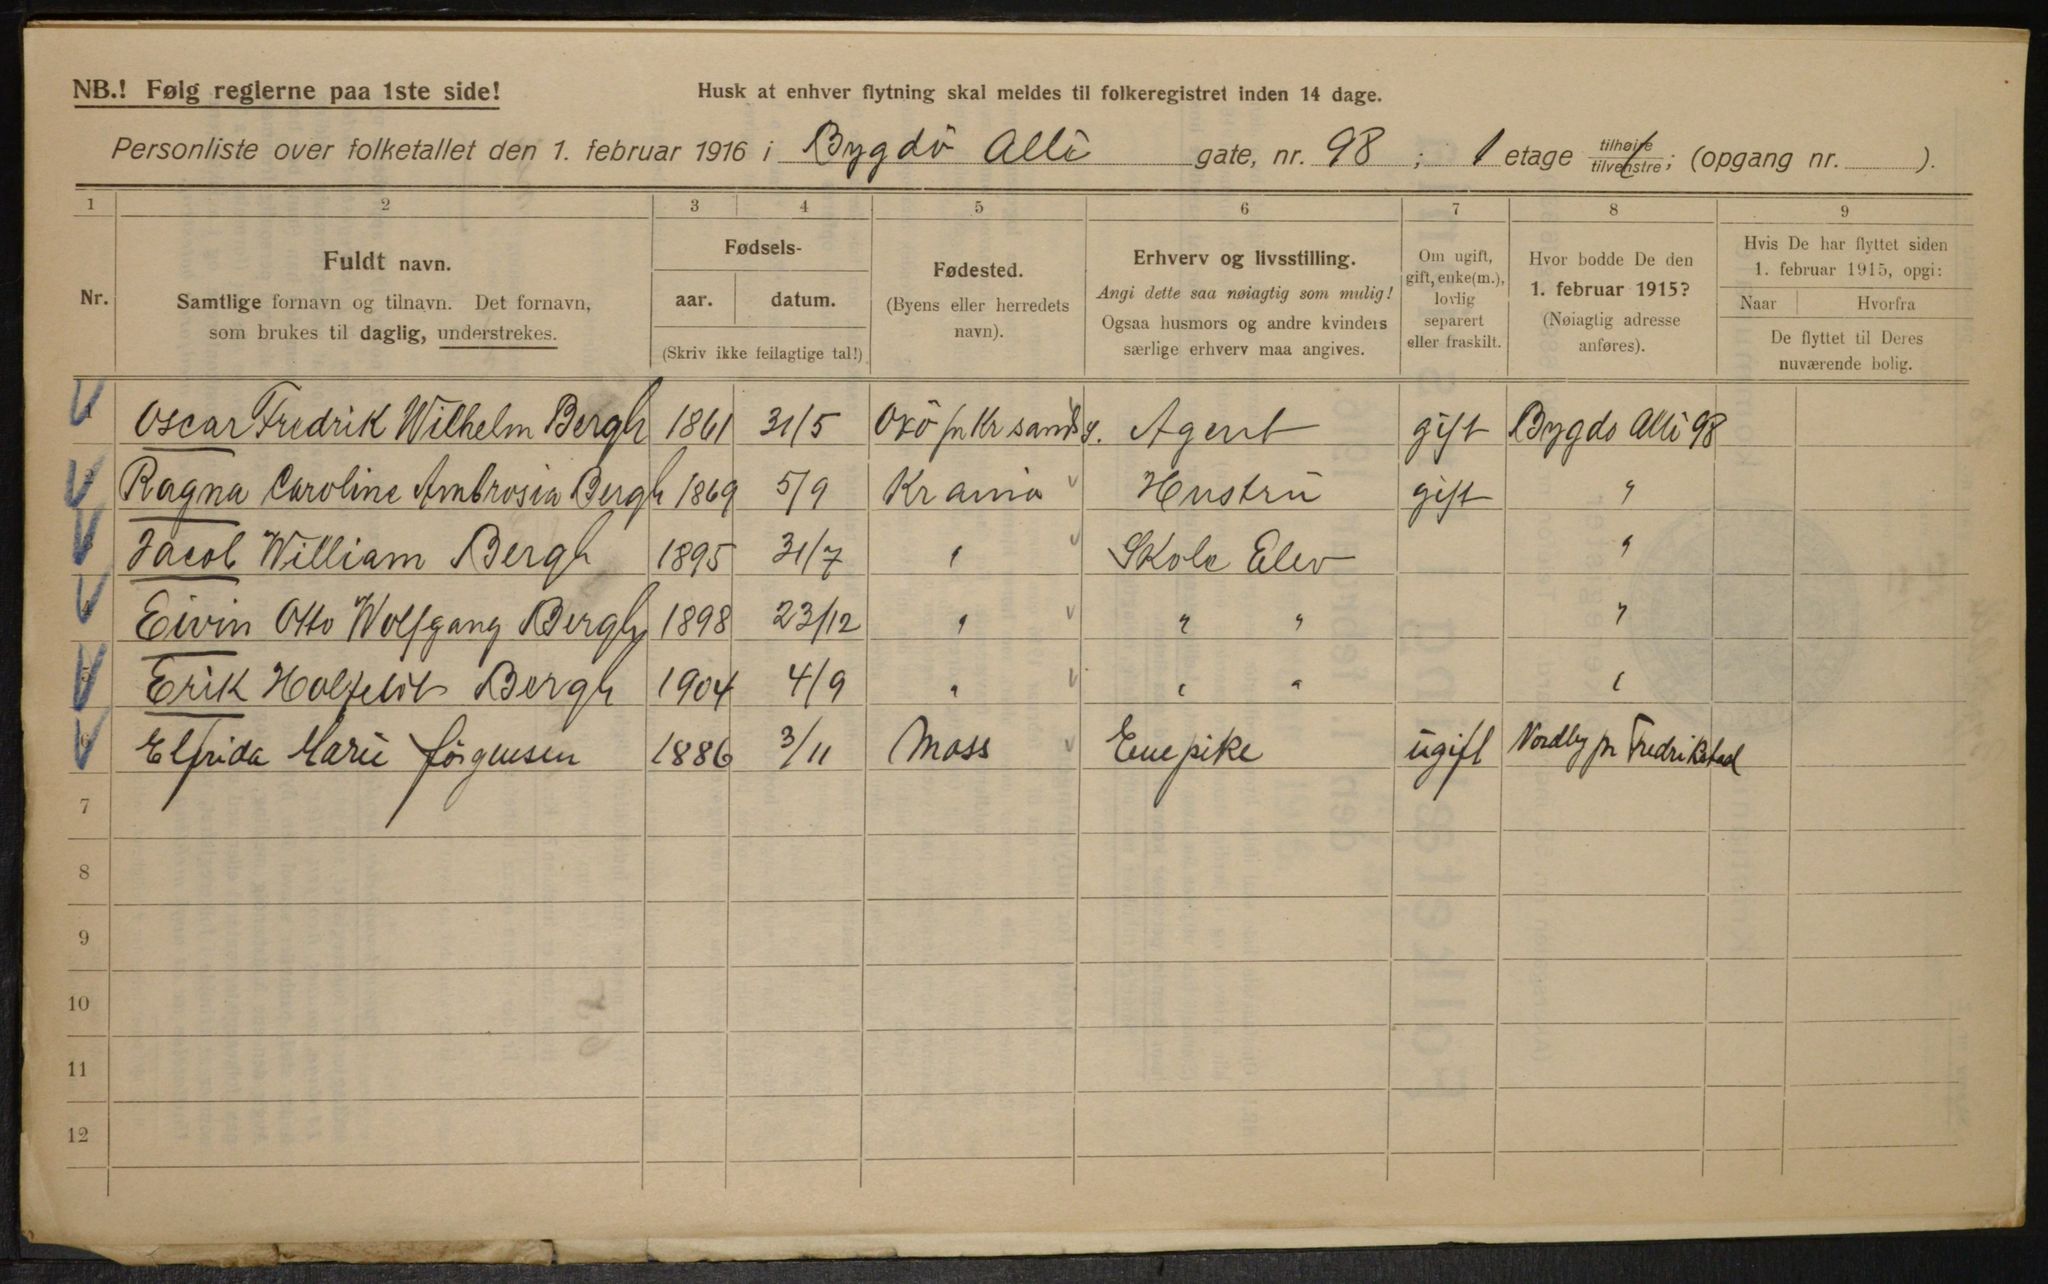 NB.! Følg reglerne paa 1ste side!
Husk at enhver flytning skal meldes til folkeregistret inden 14 dage.
Personliste over folketallet den 1. februar 1916 i Bygdö Alle gate, nr. 98 ; 1 etage tilhøire tilvenstre; (opgang nr. ).
1 2 3 4 5 6 7 8 9
Nr.
Fuldt navn.
Samtlige fornavn og tilnavn. Det fornavn,
som brukes til daglig, understrekes.
Fødsels-
aar. datum.
(Skriv ikke feilagtige tal!)
Fødested.
(Byens eller herredets
navn).
Erhverv og livsstilling.
Angi dette saa nøiagtig som mulig!
Ogsaa husmors og andre kvinders
særlige erhverv maa angives.
Om ugift,
gift, enke(m.),
lovlig
separert
eller fraskilt.
Hvor bodde De den
1. februar 1915?
(Nøiagtig adresse
anføres).
Hvis De har flyttet siden
1. februar 1915, opgi:
Naar Hvorfra
De flyttet til Deres
nuværende bolig.
Oscar Fredrik Wilhelm Bergh 1861 31/5 Oxö pr Kr sands. Agent gift Bygdo Alle 98
Ragna Caroline Ambrosia Bergh 1869 5/9 Krania Hustru gift "
Jacob William Bergh 1895 31/7 " Skole Elev "
4 Eivin Otto Wolfgang Bergh 1898 23/12 " " " "
5 Erik Holfeldt Bergh 1904 4/9 " " " "
6 Elfrida Marie Jörgensen 1886 3/11 Moss Enepike ugift Nordby pr Fredrikstad
7
8
9
10
11
12